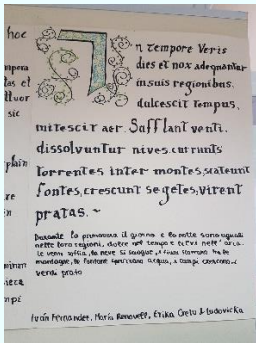 hoc
mpera
tas et
ttuor
sic
plain
re
en
minan
iera
mpi
In tempore Veris
dies et nox adequantur
in suis regionibus.
dulcescit tempus,
mitescit aer. Safflant venti.
dissolvuntur nives. currunts
torrentes inter montes, scateunt
fontes, crescunt segetes, virent
pratas. ~
Durante la primavera il giorno e la notte sono uguali
nelle loro regioni, dolce nel tempo e nell' aria.
le venti soffia, la neve si, i fiumi tra le
montagne, le fontane acqua, i campi crescono,
verdi prato
Iván Fernandez, María, Erika Cretu & Ludovicka